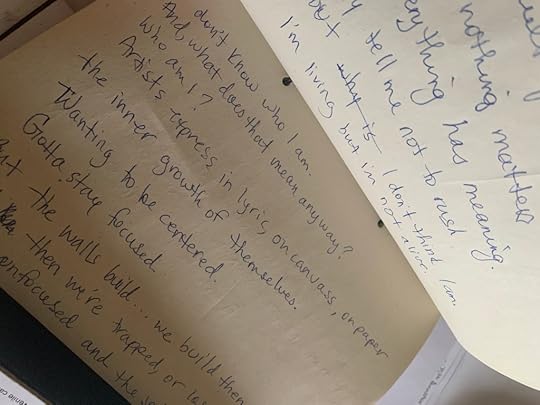 don't know who I am.
And, what does that mean anyway?
Who am I?
Artists express in lyric, on canvass, on paper
the inner growth of themselves.
Wanting to be centered.
Gotta stay focused.
the walls build... we build them
then we're trapped, or
and the
nothing matters
everything has meaning.
tell me not to rush
why is I don't think I am.
I'm living but I'm not alive.